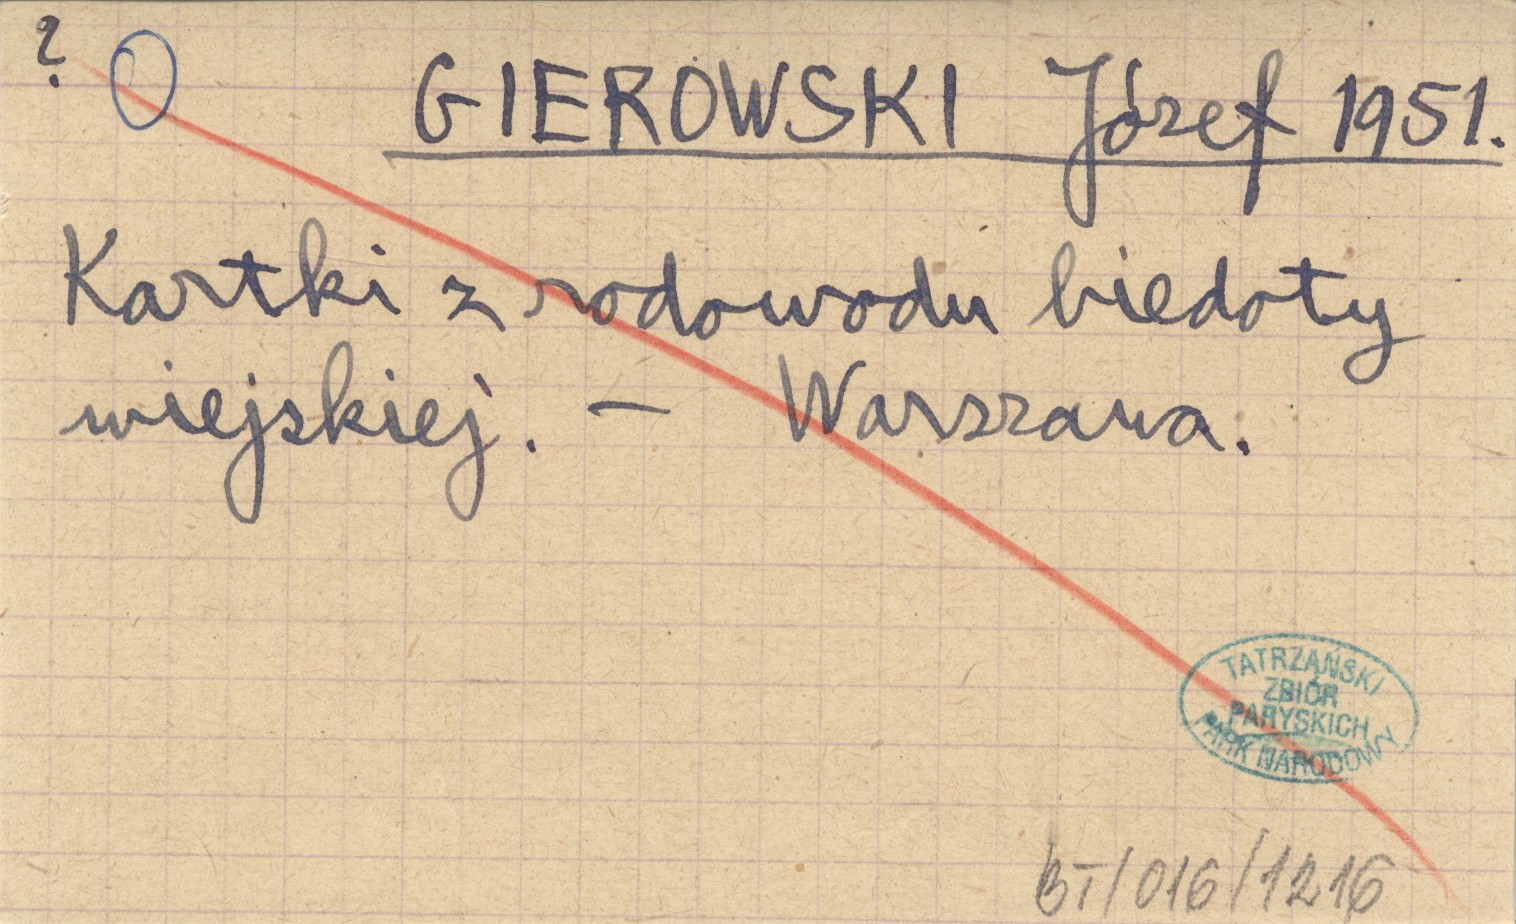 ?
GIEROWSKI Józef 1951.
Kartki z rodowodu biedoty
wiejskiej. – Warszawa.
TATRZAŃSKI
ZBIÓR
PARYSKICH
PARK NARODOWY
BT/016/1216